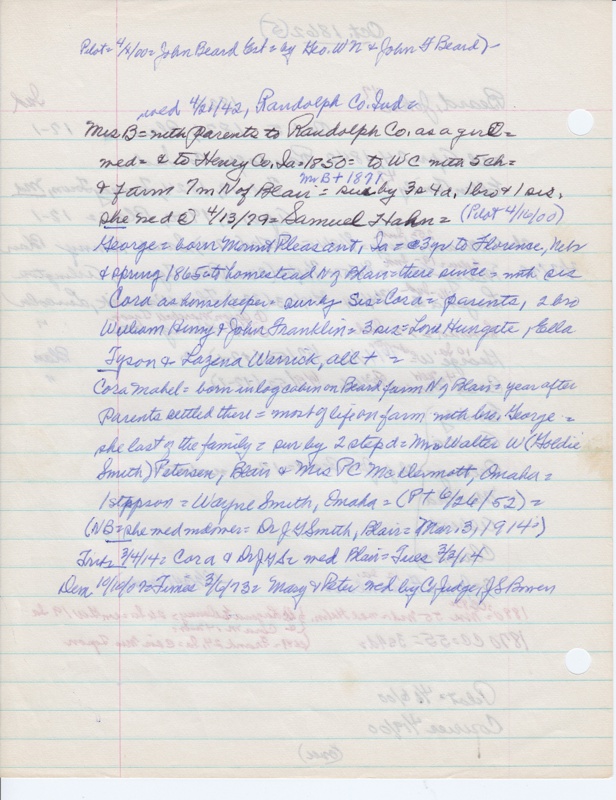 Pilot = 4/8/00 = John Beard Est = by Geo. W N & John F Beard) -
wed 4/21/42, Randolph Co. Ind =
Mrs. B = with parents to Randolph Co. as a girl =
wed = & to Henry Co, Ia = 1850 = to W C with 5 ch =
Mr B + 1871
& farm 7 m N of Blair = sur by 3 s 4 d, 1 bro & 1 sis,
she wed @ 4/13/79 = Samuel Hahn = (Pilot 4/16/00)
George = born Mount Pleasant, Ia = @ 3 yr to Florence, Neb
& spring 1865 to homestead N of Blair = there since = with sis
Cora as homekeeper = sur by sis = Cora = parents, 2 bro
William Henry & John Franklin = 3 sis = Hungate, Ella
Tyson & Lazena Warrick, all + =
Cora Mabel = born in log cabin on Beard farm N of Blair = year after
Parents settled there = most of life on farm with bro. George =
she last of the family = sur by 2 step d = Mrs Walter W (Goldie
Smith) Petersen, Blair & Mrs P C McDermott, Omaha =
1 stepson = Wayne Smith, Omaha = (PT 6/26/52) =
(NB = she wed = Dr J Y Smith, Blair = Mar 3, 1914)
Trib 3/4/14 = Cora & Dr J Y S = wed Blair = Tues 3/3/14
Dem 10/10/07 = Times 3/6/73 = Mary & Peter wed by Co Judge, J S Bowen